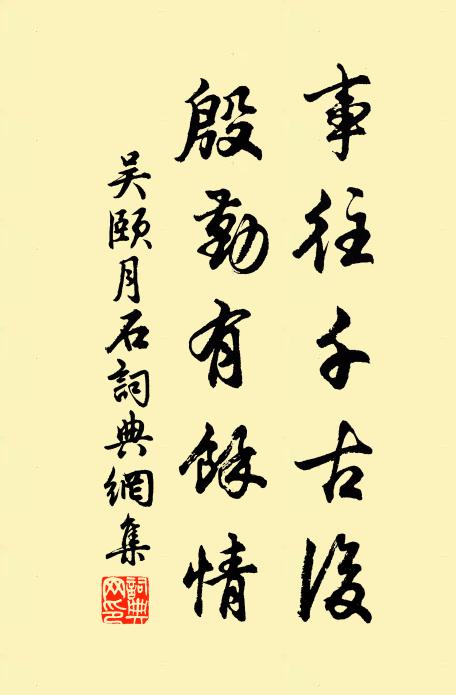 事往千古後
殷勤有餘情
吴頤月石詞典網集
詞典网印